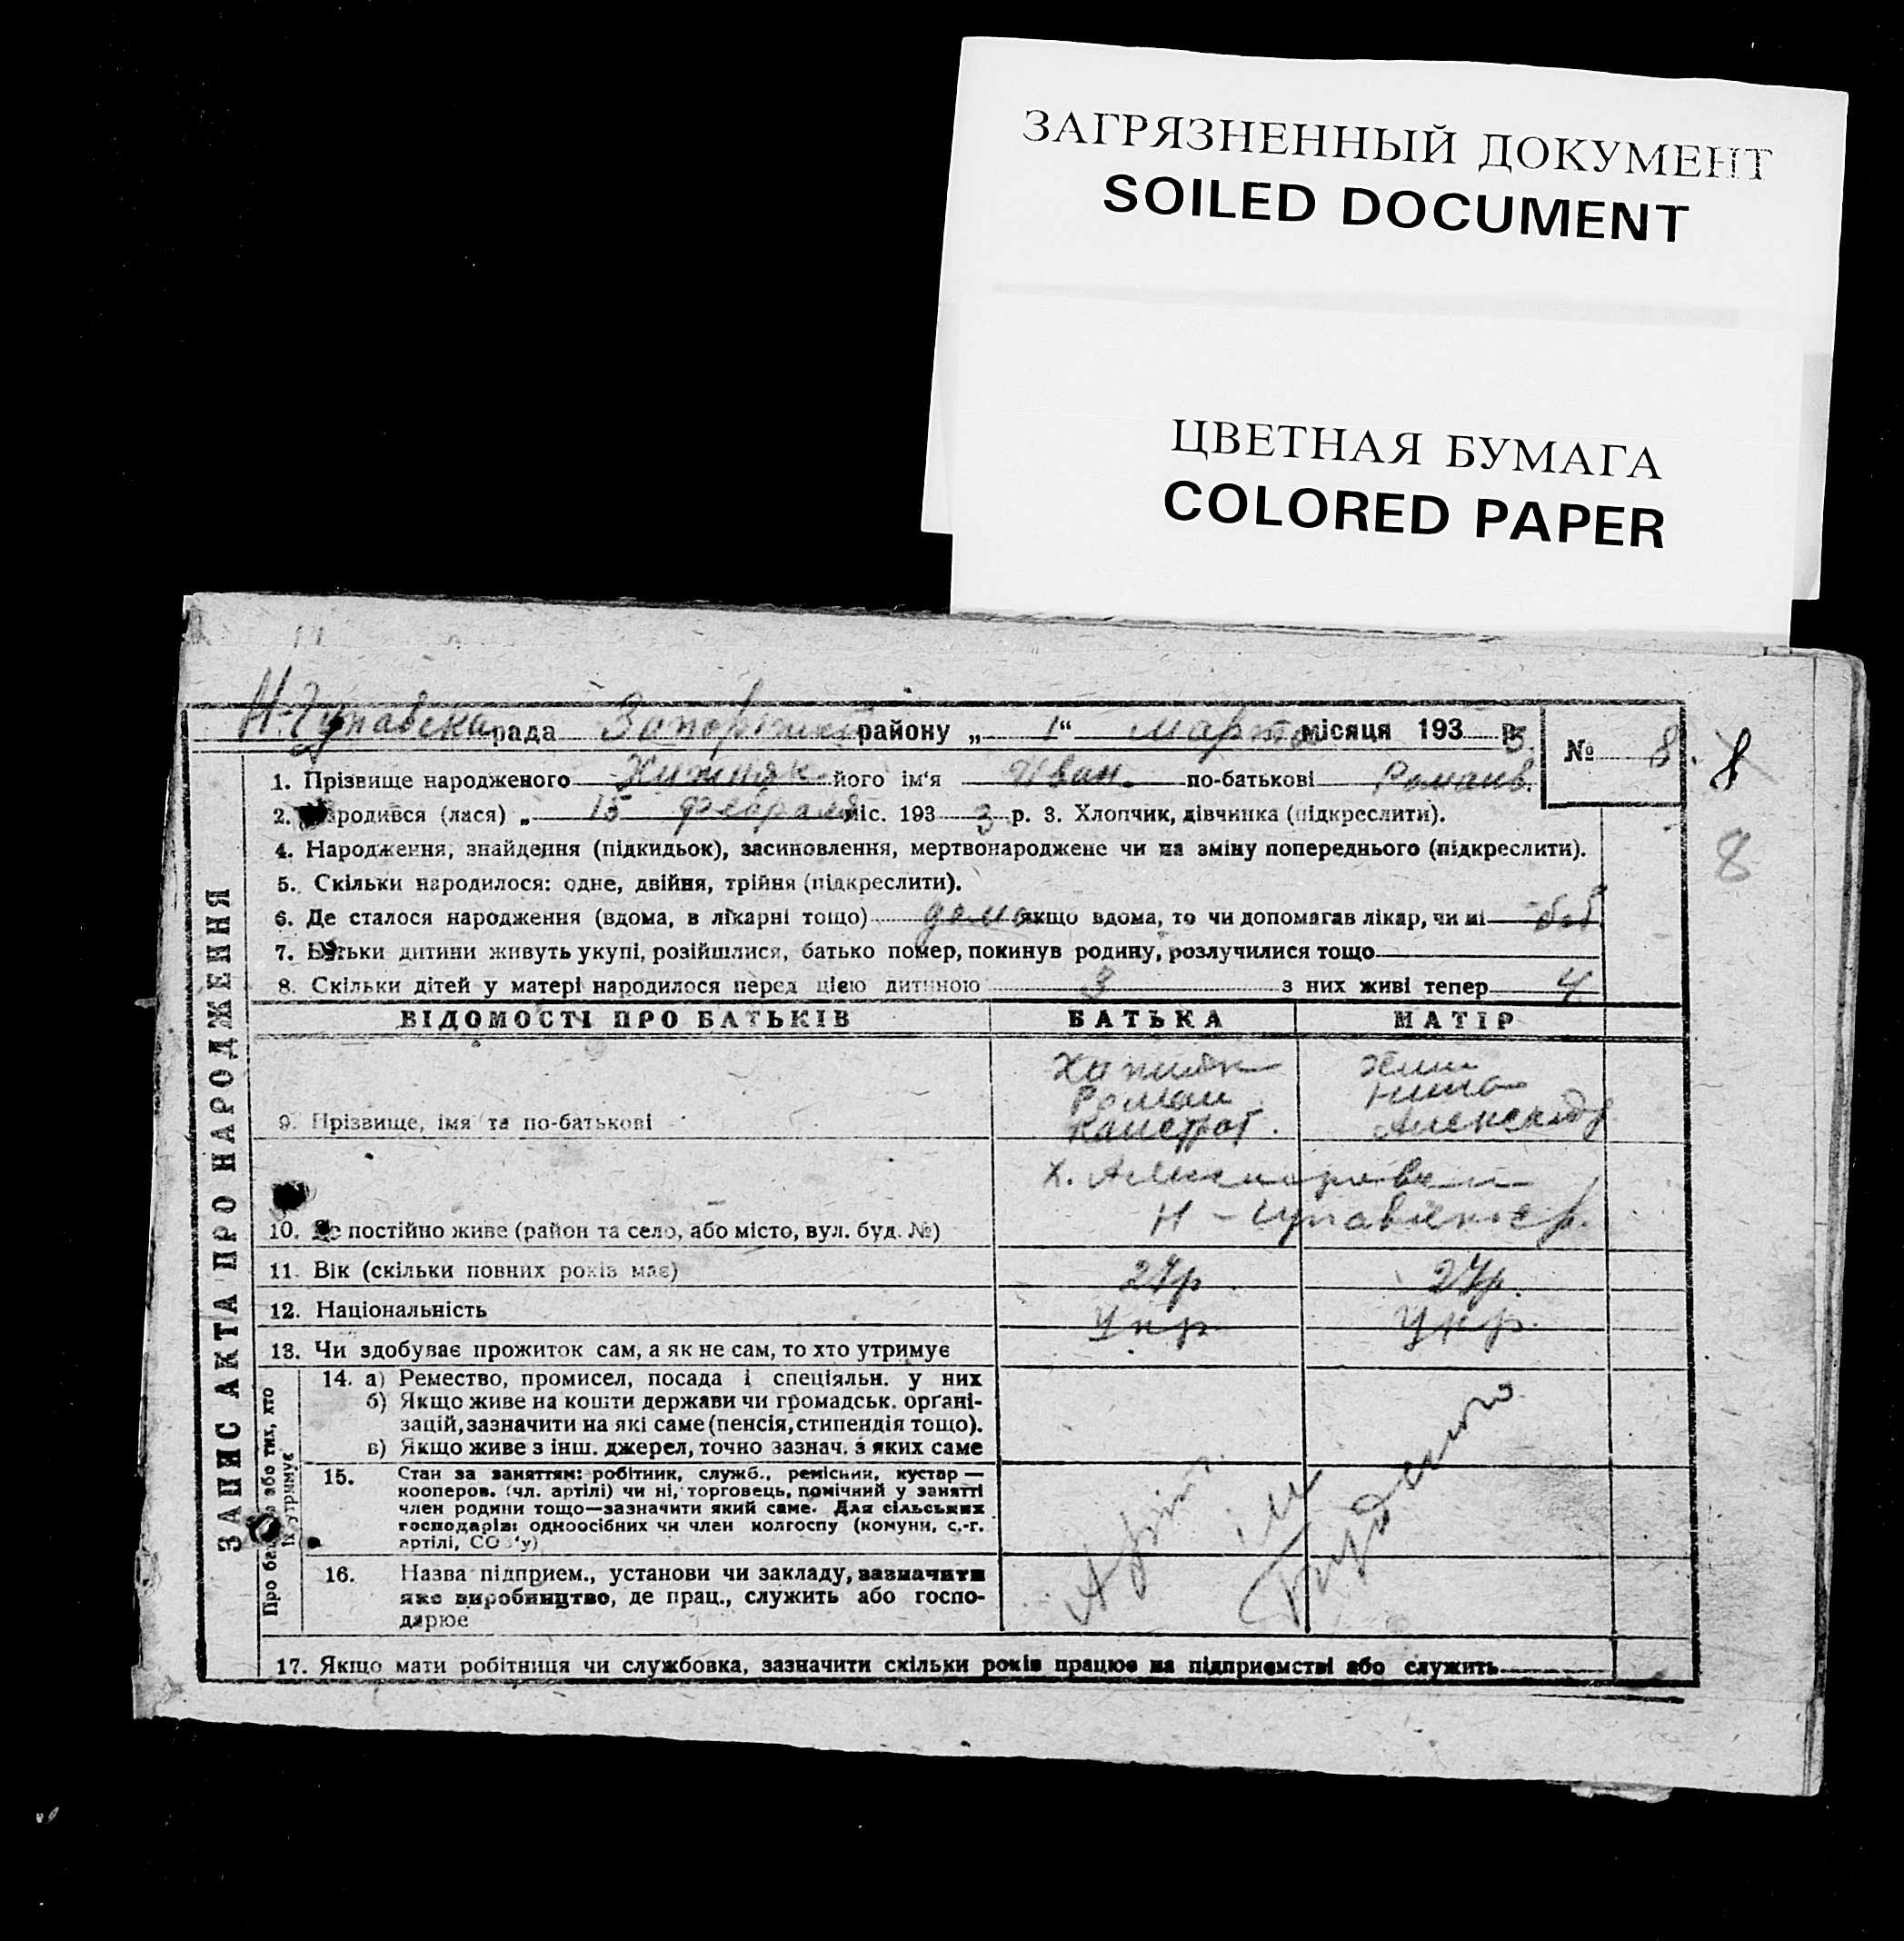 ЗАГРЯЗНЕННЫЙ ДОКУМЕНТ
SOILED DOCUMENT
ЦВЕТНАЯ БУМАГА
COLORED PAPER
рада району „ 1“ марта місяця 193 3 р.
№ 8. 8
1. Прізвище народженого його ім‘я Иван. по-батькові Романв.
2. Народився (лася) „ 15 февраля міс. 193 3 р. 3. Хлопчик, дівчинка (підкреслити).
8
4. Народження, знайдення (підкидьок), засиновлення, мертвонароджене чи на зміну попереднього (підкреслити).
5. Скільки народилося: одне, двійня, трійня (підкреслити).
6. Де сталося народження (вдома, в лікарні тощо) дома якщо вдома, то чи допомагав лікар, чи ні
7. Батьки дитини живуть укупі, розійшлися, батько помер, покинув родину, розлучилися тощо
8. Скільки дітей у матері народилося перед цією дитиною 3 з них живі тепер 4
ВІДОМОСТІ ПРО БАТЬКІВ БАТЬКА МАТІР
9. Прізвище, імя та по-батькові
Роман
10. Де постійно живе (район та село, або місто, вул. буд. №)
11. Вік (скільки повних років має) 27р 27р.
12. Національність Укр Укр.
13. Чи здобуває прожиток сам, а як не сам, то хто утримує
14. а) Ремество, промисел, посада і спеціяльн. у них
б) Якщо живе на кошти держави чи громадськ. орґані-
зацій, зазначити на які саме (пенсія, стипендія тощо).
в) Якщо живе з інш. джерел, точно зазнач. з яких саме
15. Стан за заняттям: робітник, служб., ремісник, кустар —
кооперов. (чл. артілі) чи ні, торговець, помічний у занятті
член родини тощо—зазначити який саме. Для сільських
господарів: одноосібних чи член колгоспу (комуни, с.-г.
артілі, СО ‘у)
16. Назва підприєм., установи чи закладу, зазначити
яке виробництво, де прац., служить або госпо-
дарює
17. Якщо мати робітниця чи службовка, зазначити скільки років працює на підприємстві або служить
ЗАПИС АКТА ПРО НАРОДЖЕННЯ
Про або тих, хто
їх утримує